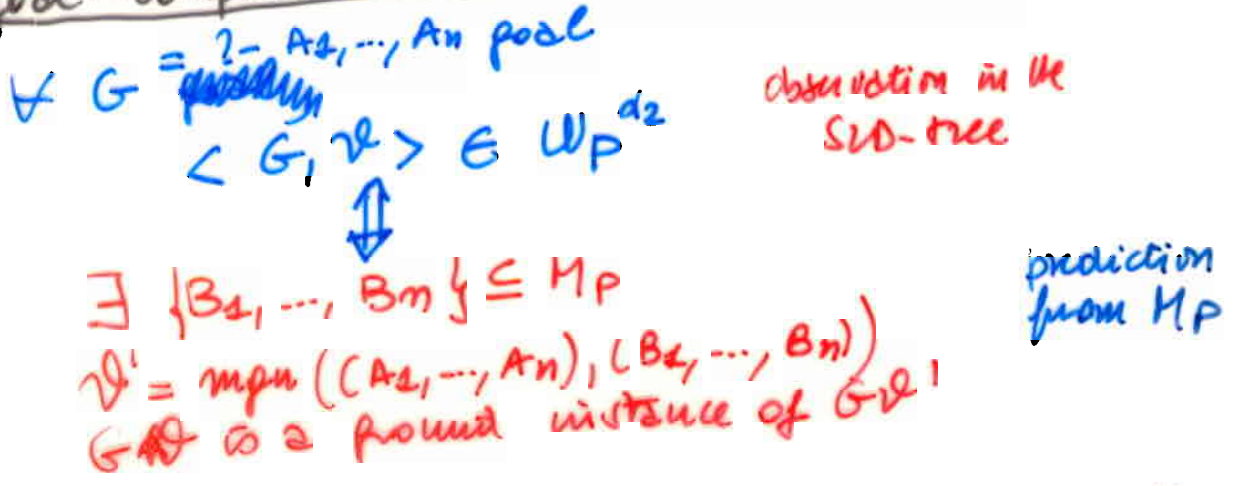 ∀ G = ?- A1, ..., An goal
< G, ϑ > ∈ WP^α2
observation in the
SLD-tree
⇕
∃ {B1, ..., Bn} ⊆ MP
prediction
from MP
ϑ' = mgu ((A1, ..., An), (B1, ..., Bn))
Gϑ is a ground instance of Gϑ'